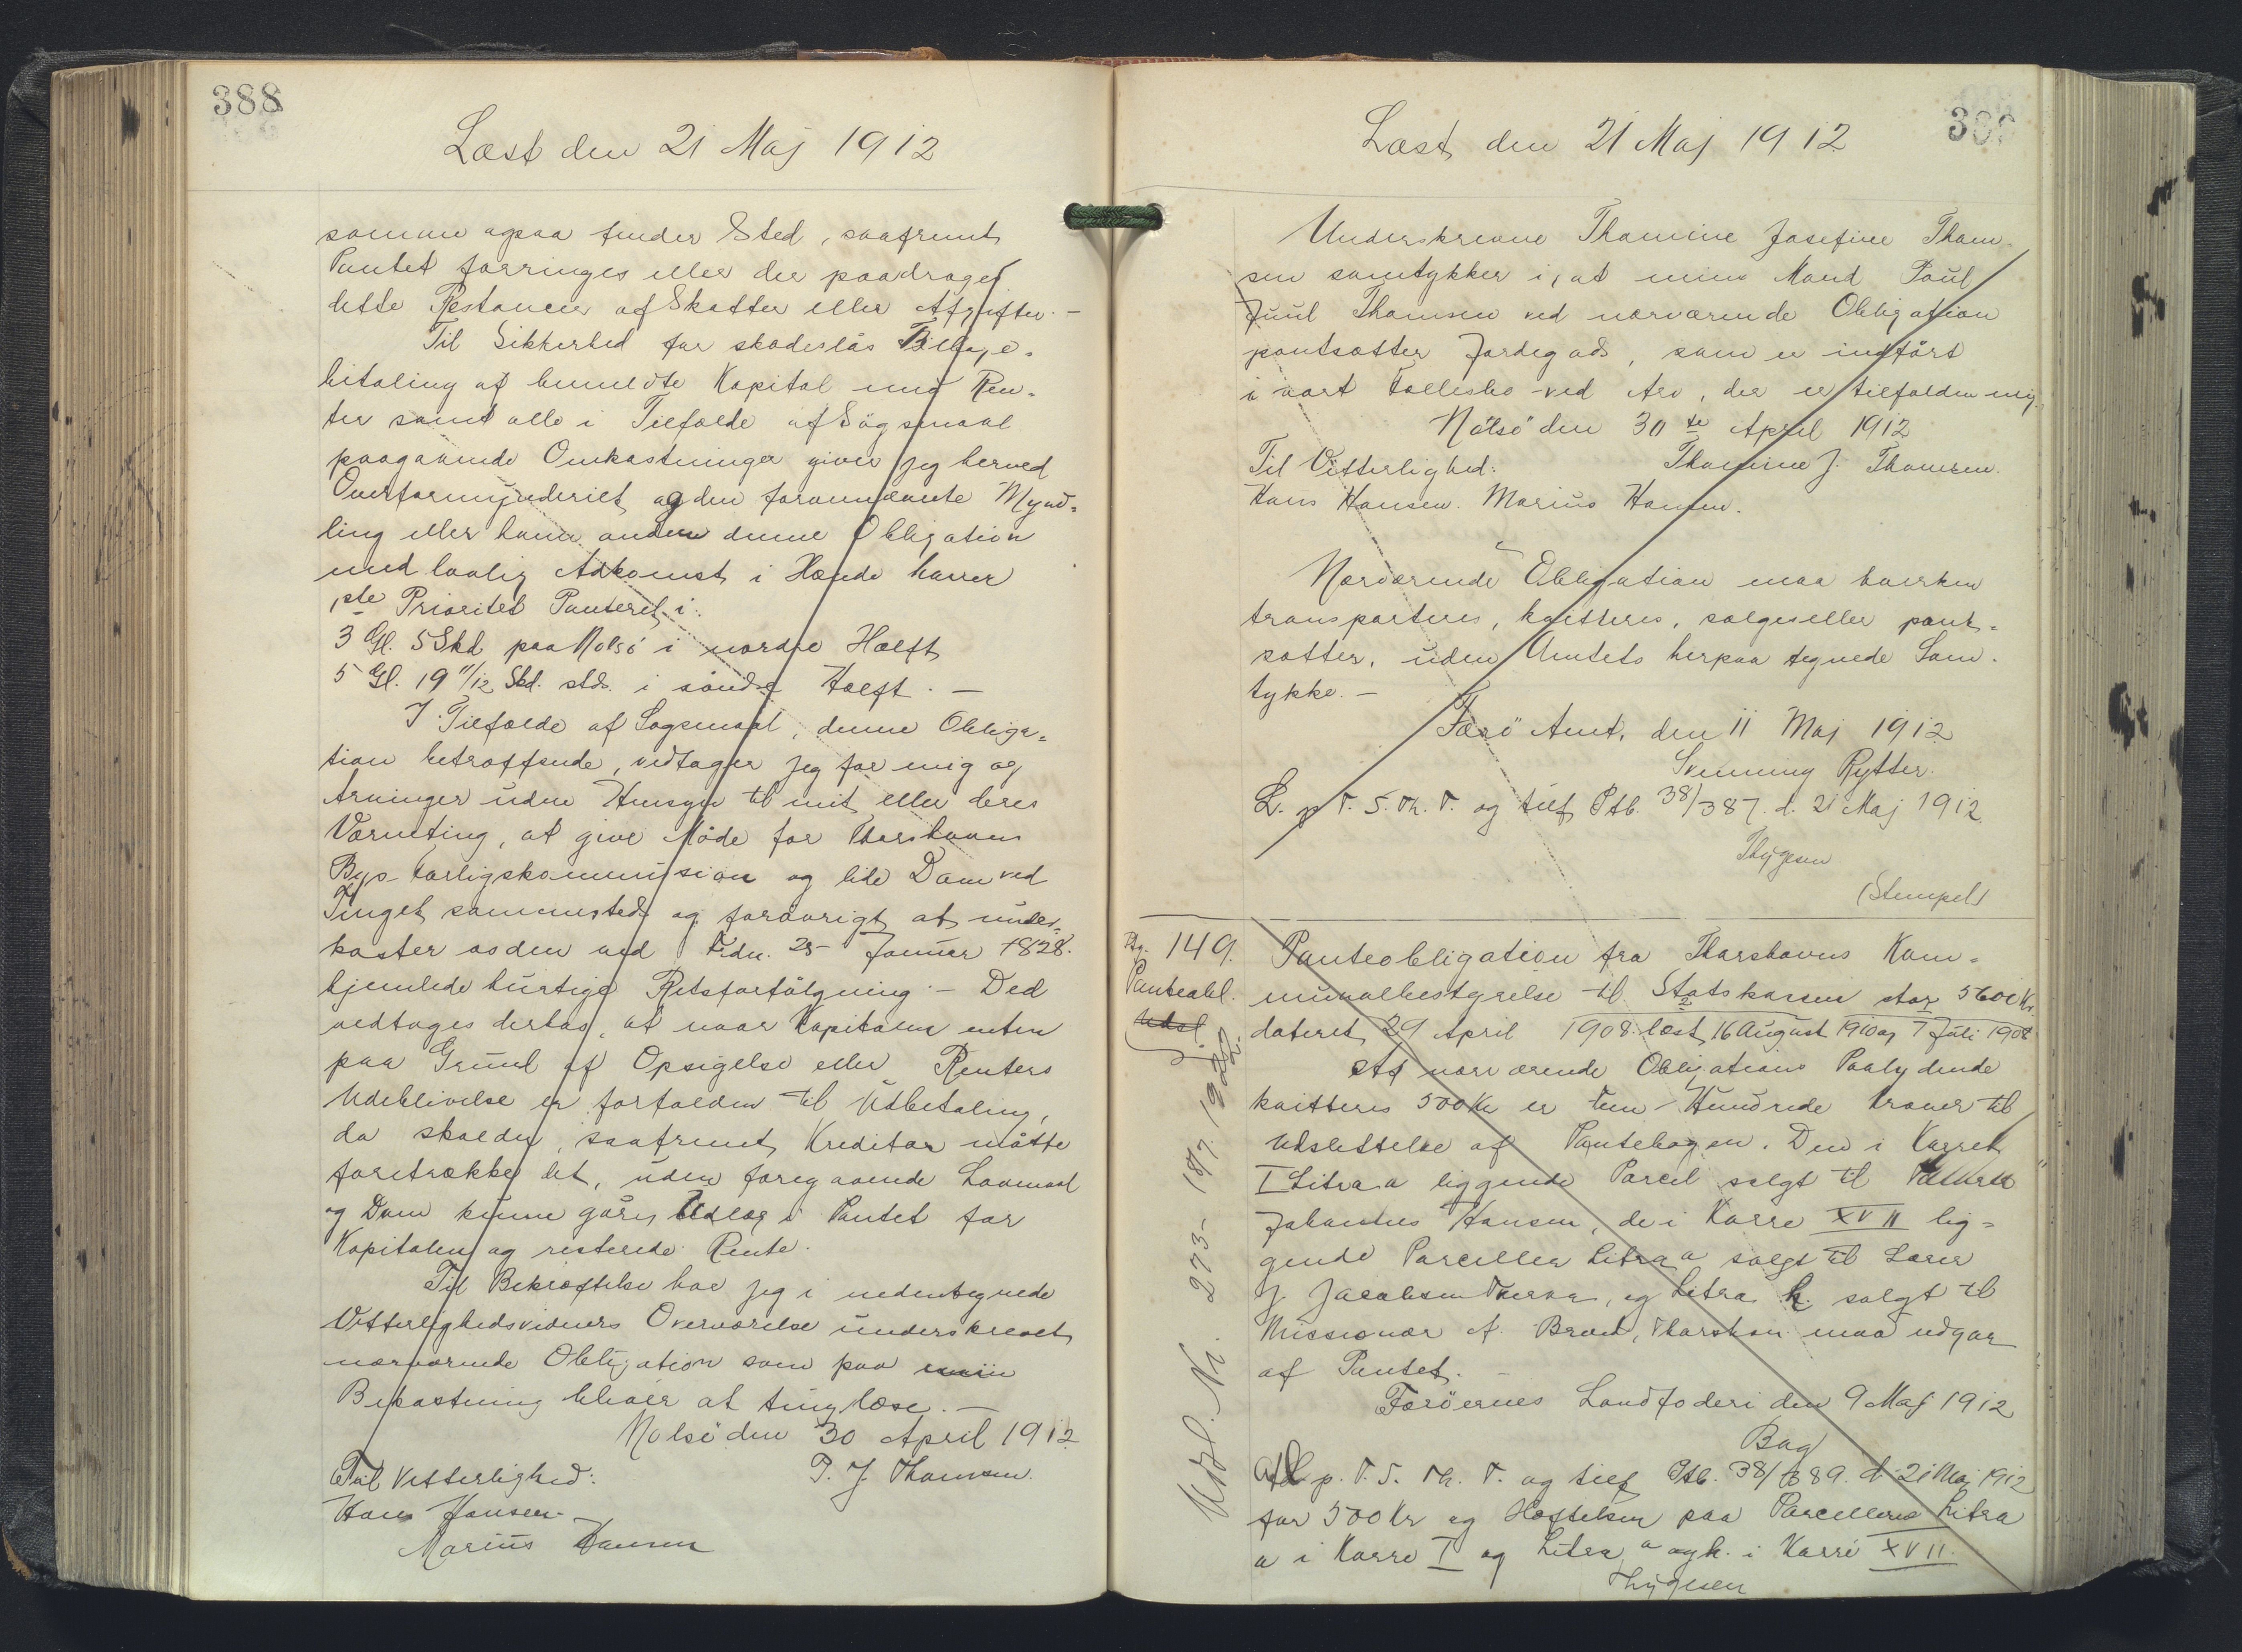 388
Læst den 21 Maj 1912
samme ogsaa finder Sted, saafremt
Pantet forringes eller der paadrages
dette Restancer af Skatter eller Afgifter. —
Til Sikkerhed for skadeslös Tilbage=
betaling af bemeldte Kapital med Ren=
ter samt alle i Tilfælde af Sögsmaal
paagaaende Omkostninger giver jeg herved
Overformynderiet og den forannævnte Mynd=
ling eller hvem anden denne Obligation
med lovlig Adkomst i Hænde haver
1ste Prioritet Panteret i:
3 Gl. 5 Skd paa Nolsö i nordre Hælft
5 Gl. 19 11/12 Skd. stds. i söndre Hælft. —
I Tilfælde af Sagsmaal, denne Obliga=
tion betræffende, vedtager jeg for mig og
Arvinger uden Hensyn til mit eller deres
Værneting, at give Möde for Thorshavns
Bys Forligskommission og lide Dom ved
Tinget sammesteds og forövrigt at under=
kaster os den ved Frdn. 25 Januar 1828.
hjemlede hurtige Retsforfölgning. — Ded
vedtages derhos, at naar Kapitalen enten
paa Grund af Opsigelse eller Renters
Udeblivelse er forfalden til Udbetaling,
da skal der, saafremt Kreditor måtte
foretrække det, uden foregaaende Lovmaal
og Dom kunne göres Udlæg i Pantet for
Kapitalen og resterede Rente.
Til Bekræftelse har jeg i nedentegnede
Vitterlighedsvidners Overværelse underskrevet
nærværende Obligation som paa min
Bekostning bliver at tinglæse. —
Nolsö den 30 April 1912
Til Vitterlighed: P. J. Thomsen.
Hans Hansen.
Marius Hansen
Læst den 21 Maj 1912
Underskrevne Thomine Josefine Thom=
sen samtykker i, at min Mand Poul
Juul Thomsen ved nærværende Obligation
pantsætter Jordegods, som er indfört
i vort Fællesbo ved Arv, der er tilfalden mig.
Nölsö den 30te April 1912
Til Vitterlighed: Thomine J. Thomsen.
Hans Hansen. Marius Hansen.
Nærværende Obligation maa hverken
transporteres, kvitteres, sælges eller pant=
sættes, uden Amtets herpaa tegnede Sam=
tykke. —
Færö Amt, den 11 Maj 1912
Svenning Rytter.
L. p. F. S. Th. T. og tilf Ptb. 38/387. d. 21 Maj 1912.
Thygesen
(Stempel)
149.
Panteobl.
Udsl
Panteobligation fra Thorshavns Kom=
munalbestyrelse til Statskassen stor 5600 Kr.
dateret 29 April 1908. læst 16 August 1910 og 7 Juli 1908
Af nærværende Obligations Paalydende
kvitteres 500 Kr er Fem Hundrede Kroner til
Udslettelse af Pantebogen. Den i Karret
I Litra a liggende Parcel solgt til
Johannes Hansen, de i Karre XVII lig=
gende Parceller Litra a solgt til Lærer
J. Jacobsen Tveraa, og Litra k. solgt til
Missionær A. Brend, Thorshavn maa udgaa
af Pantet. —
Færöernes Landfogderi den 9 Maj 1912
Bag
Afl. p. F. S. Th. T. og tilf Ptb. 38/389. d. 21 Maj 1912
for 500 Kr og Hæftelsen paa Parcellerne Litra
a i Karre I og Litra a og k. i Karré XVII.
Thygesen
Udsl. Nr. 273- 18/7 1922.